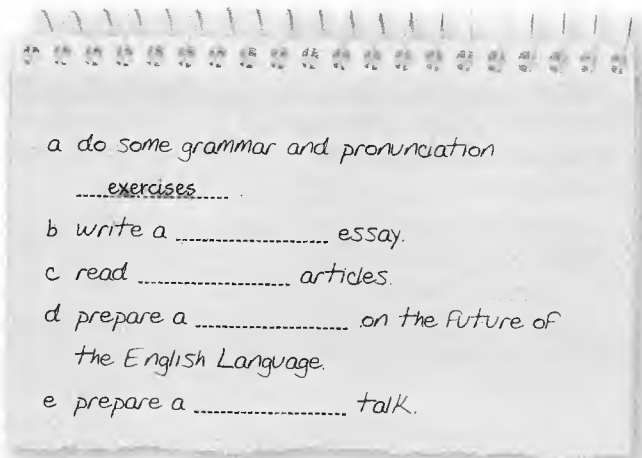 a do some grammar and pronunciation
exercises .
b write a .................... essay.
c read .................... articles.
d prepare a .................... on the future of
the English Language.
e prepare a .................... talk.